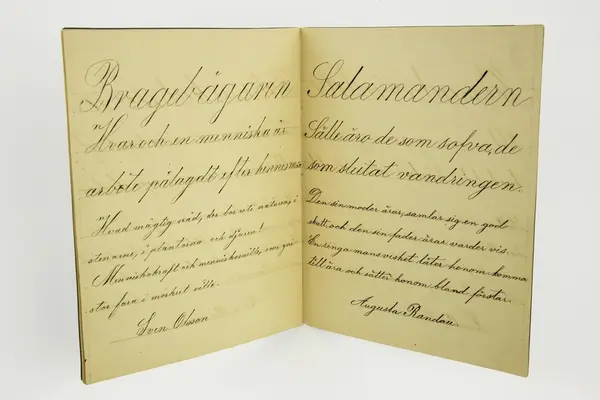 Bragebägaren
Hvar och en menniska är
arbete pålagdt efter hennes
Hvad mägtig nåd, der bor uti naturen, i
stenarne, i plantorna och djuren!
Menniskokraft och menniskosnille, som gni-
stor fara i morkret vilse.
Sven Olsson
Salamandern
Sälle äro de som sofva, de
som slutat vandringen.
Den sin moder ärar, samlar sig en god
skatt, och den sin fader ärar varder vis.
En ringa mans vishet låter honom komma
till ära och sätter honom bland förstar.
Augusta Randau.